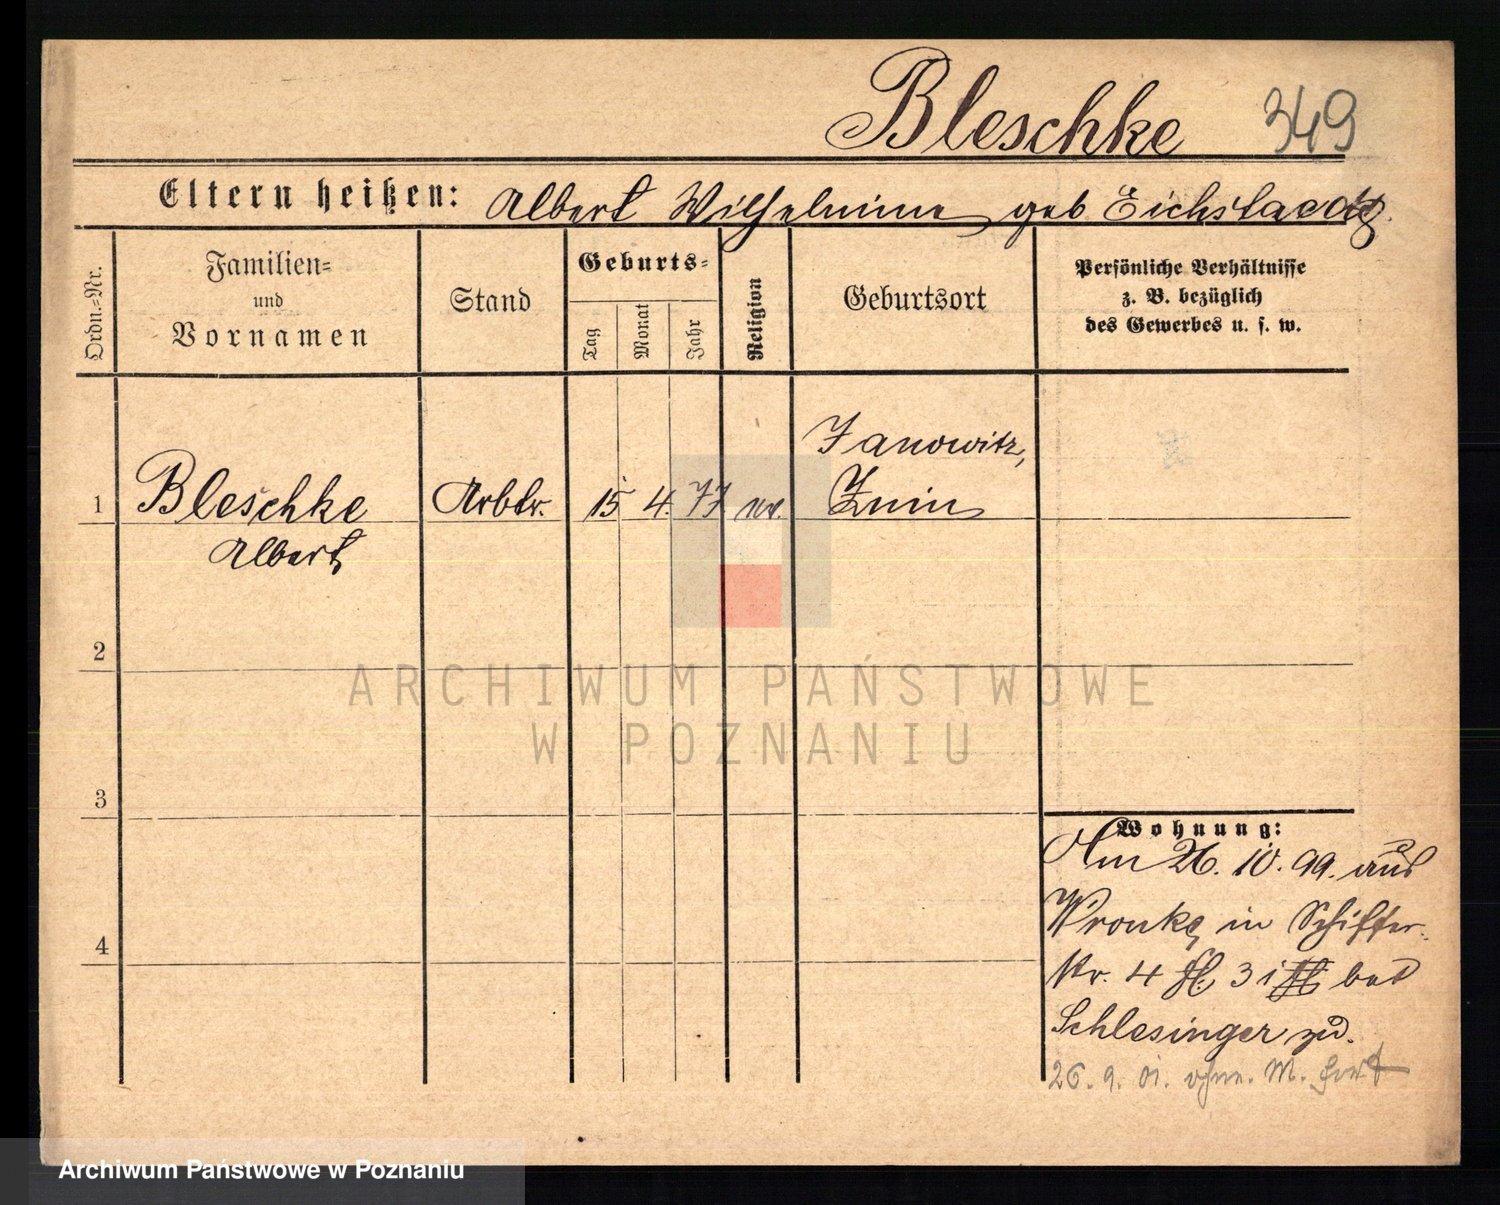 Bleschke 349
Eltern heißen: Albert Wilhelmine geb Eichstaedt
Ordn.=Nr.
Familien=
und
Vornamen
Stand
Geburts=
Tag
Monat
Jahr
Religion
Geburtsort
Persönliche Verhältnisse
z. B. bezüglich
des Gewerbes u. s. w.
1 Bleschke Arbtr. 15 4. 77 ev. Janowitz,
Znin
Albert
2
3
4
ARCHIWUM PAŃSTWOWE
W POZNANIU
Wohnung:
Am 26. 10. 99. aus
Wronke in Schiffer-
str. 4 H. 3 i bei
Schlesinger zu.
26. 9. 01. ohne. M. fort
Archiwum Państwowe w Poznaniu